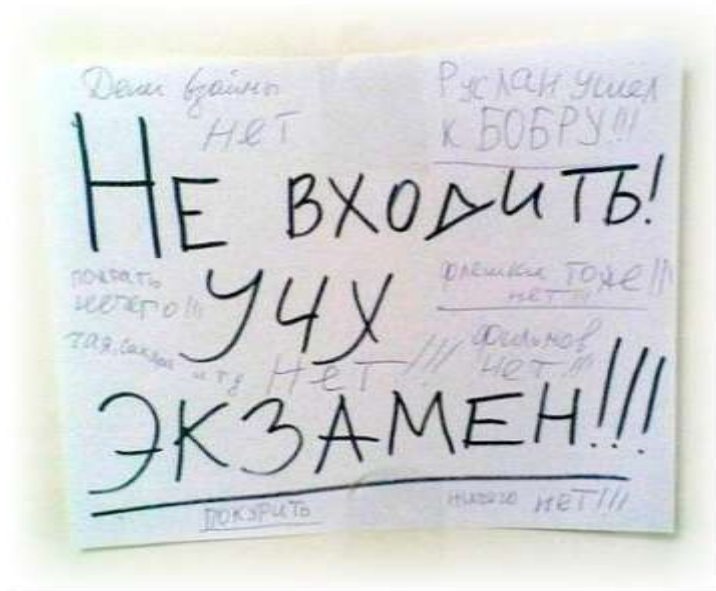 Денег взаймы
НЕТ
Руслан ушел
к БОБРУ!!!
НЕ ВХОДИТЬ!
пожрать
нечего!!!
УЧУ
флешки тоже!!!
нет!!!
и тд НЕТ!!!
фильмов
НЕТ!!!
ЭКЗАМЕН!!!
ПОКУРИТЬ
ничего НЕТ!!!